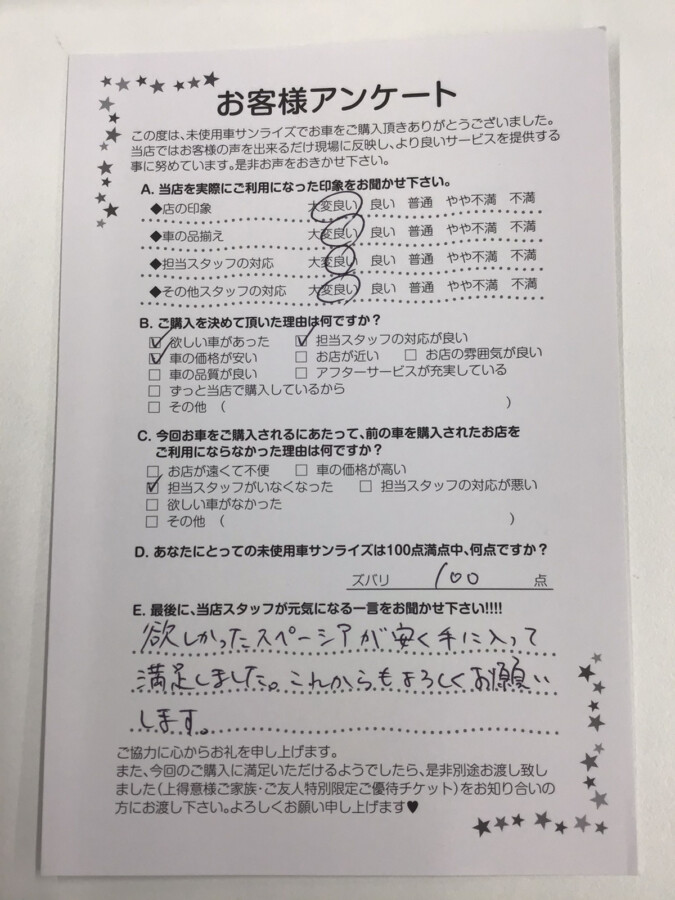 お客様アンケート
この度は、未使用車サンライズでお車をご購入頂きありがとうございました。
当店ではお客様の声を出来るだけ現場に反映し、より良いサービスを提供する
事に努めています。是非お声をおきかせ下さい。
A. 当店を実際にご利用になった印象をお聞かせ下さい。
◆店の印象 大変良い 良い 普通 やや不満 不満
◆車の品揃え 大変良い 良い 普通 やや不満 不満
◆担当スタッフの対応 大変良い 良い 普通 やや不満 不満
◆その他スタッフの対応 大変良い 良い 普通 やや不満 不満
B. ご購入を決めて頂いた理由は何ですか？
☑ 欲しい車があった ☑ 担当スタッフの対応が良い
☑ 車の価格が安い □ お店が近い □ お店の雰囲気が良い
□ 車の品質が良い □ アフターサービスが充実している
□ ずっと当店で購入しているから
□ その他 （ ）
C. 今回お車をご購入されるにあたって、前の車を購入されたお店を
ご利用にならなかった理由は何ですか？
□ お店が遠くて不便 □ 車の価格が高い
☑ 担当スタッフがいなくなった □ 担当スタッフの対応が悪い
□ 欲しい車がなかった
□ その他 （ ）
D. あなたにとっての未使用車サンライズは100点満点中、何点ですか？
ズバリ 100 点
E. 最後に、当店スタッフが元気になる一言をお聞かせ下さい!!!!
欲しかったスペーシアが安く手に入って
満足しました。これからもよろしくお願い
します。
ご協力に心からお礼を申し上げます。
また、今回のご購入に満足いただけるようでしたら、是非別途お渡し致し
ました（上得意様ご家族・ご友人特別限定ご優待チケット）をお知り合いの
方にお渡し下さい。よろしくお願い申し上げます♥